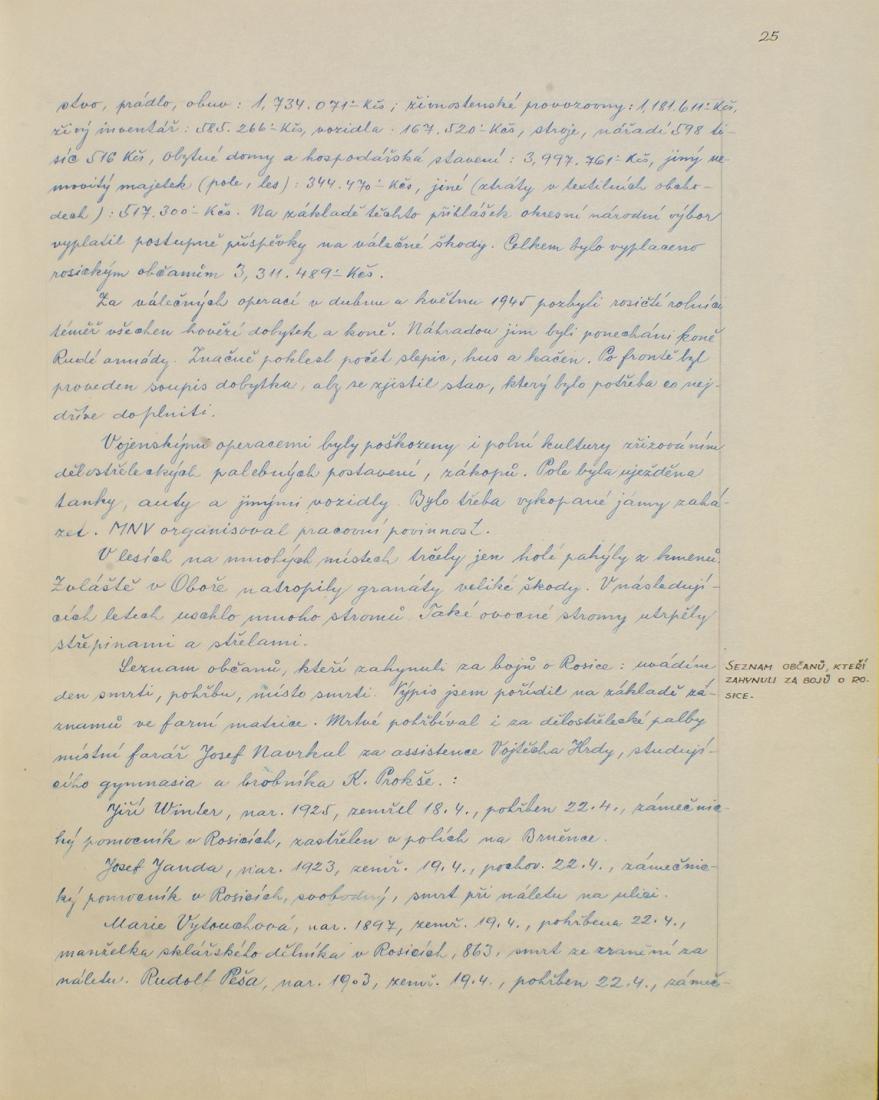 25
stvo, prádlo, obuv : 1,734.071·- Kčs ; živnostenské provozovny : 1,181.611·- Kčs,
živý inventář : 585.266·- Kčs, vozidla 167.520·- Kčs, stroje, nářadí 598 ti-
síc 516 Kčs, obytné domy a hospodářská stavení : 3,997.761·- Kčs, jiný ne-
movitý majetek (pole, les) : 344.470·- Kčs, jiné (ztráty v textilních obcho-
dech) : 517.300·- Kčs. Na základě těchto přihlášek okresní národní výbor
vyplatil postupně příspěvky na válečné škody. Celkem bylo vyplaceno
rosickým občanům 3,311.489·- Kčs.
Za válečných operací v dubnu a květnu 1945 pozbyli rosičtí rolníci
téměř všechen hovězí dobytek a koně. Náhradou jim byli ponecháni koně
Rudé armády. Značně pohlesl počet slepic, hus a kačen. Po frontě byl
proveden soupis dobytka, aby se zjistil stav, který bylo potřeba co nej-
dříve doplniti.
Vojenskými operacemi byly poškozeny i polní kultury zřizováním
dělostřeleckých palebných postavení, zákopů. Pole byla uježděna
tanky, auty a jinými vozidly. Bylo třeba vykopané jámy zahá-
zet. MNV organisoval pracovní povinnost.
V lesích na mnohých místech trčely jen holé pahýly z kmenů.
Zvláště v Oboře natropily granáty veliké škody. V následují-
cích letech uschlo mnoho stromů. Také ovocné stromy utrpěly
střepinami a střelami.
Seznam občanů, kteří zahynuli za bojů o Rosice : uvádím
SEZNAM OBČANŮ, KTEŘÍ
ZAHYNULI ZA BOJŮ O RO-
SICE.
den smrti, pohřbu, místo smrti. Výpis jsem pořídil na základě zá-
znamů ve farní matrice. Mrtvé pohřbíval i za dělostřelecké palby
místní farář Josef Navrkal za assistence Vojtěcha Hrdy, studují-
cího gymnasia a hrobníka K. Prokše. :
Jiří Winter, nar. 1925, zemřel 18.4., pohřben 22.4., zámečnic-
ký pomocník v Rosicích, zastřelen v polích na Brněnce.
Josef Janda, nar. 1923, zemř. 19.4., pochov. 22.4., zámečnic-
ký pomocník v Rosicích, svobodný, smrt při náletu na ulici.
Marie Vytouchová, nar. 1897, zemř. 19.4., pohřbena 22.4.,
manželka sklářského dělníka v Rosicích, 863, smrt ze zranění za
náletu. Rudolf Peša, nar. 1903, zemř. 19.4., pohřben 22.4., zámeč-